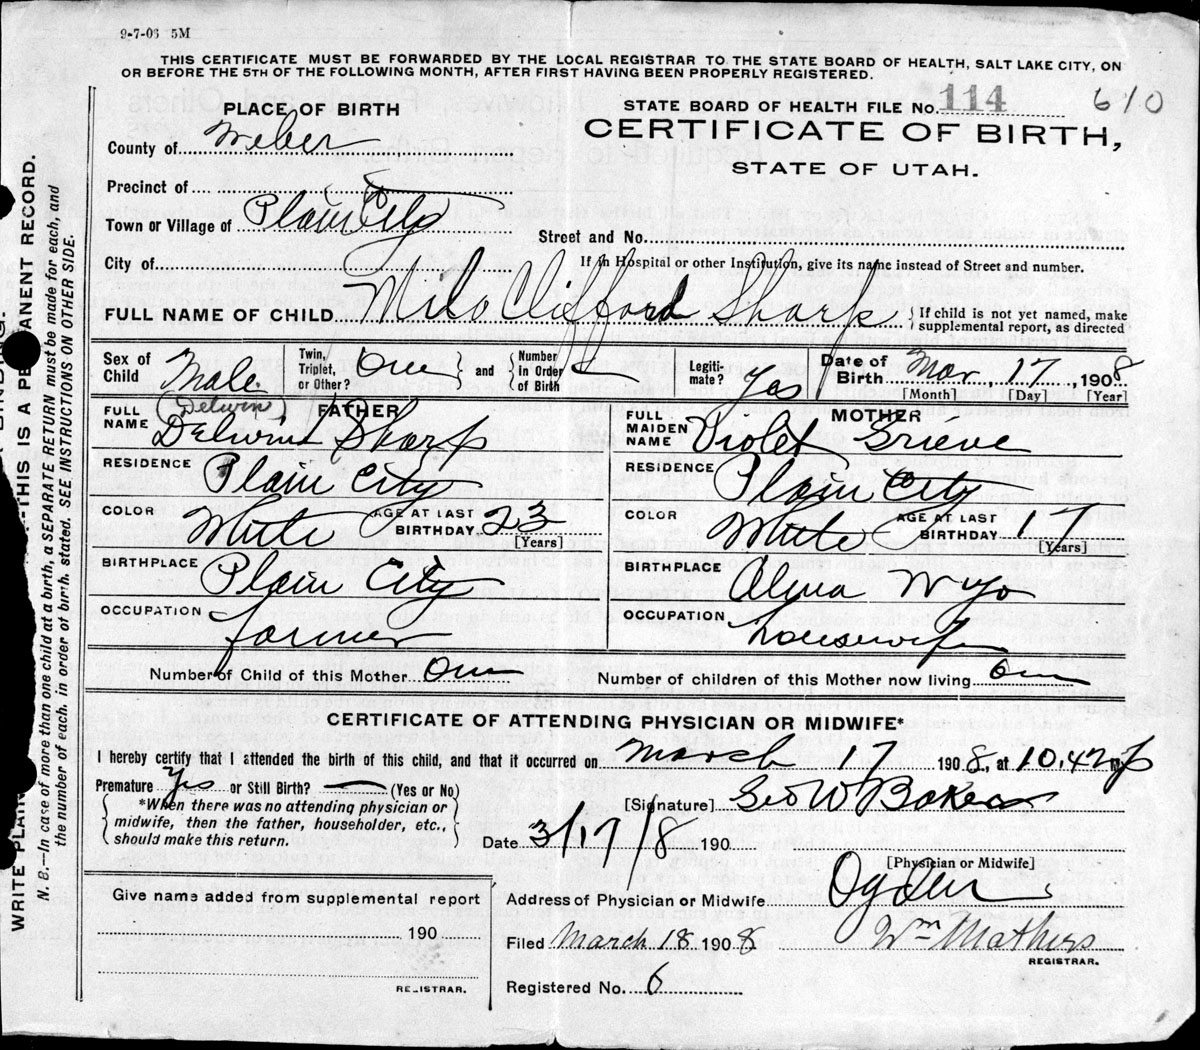 9-7-06 5M
THIS CERTIFICATE MUST BE FORWARDED BY THE LOCAL REGISTRAR TO THE STATE BOARD OF HEALTH, SALT LAKE CITY, ON
OR BEFORE THE 5TH OF THE FOLLOWING MONTH, AFTER FIRST HAVING BEEN PROPERLY REGISTERED.
PLACE OF BIRTH
STATE BOARD OF HEALTH FILE No. 114 610
County of Weber
CERTIFICATE OF BIRTH,
STATE OF UTAH.
Precinct of
Town or Village of Plain City
Street and No.
City of
If in Hospital or other Institution, give its name instead of Street and number.
FULL NAME OF CHILD Milo Clifford Sharp
{ If child is not yet named, make
supplemental report, as directed
Sex of Child Male.
Twin, Triplet, or Other? One } and { Number in Order of Birth
Legiti- mate? Yes
Date of Birth Mar, 17, 1908
[Month] [Day] [Year]
FULL NAME (Delwin) FATHER
Delwin Sharp
FULL MAIDEN NAME MOTHER
Violet Grieve
RESIDENCE Plain City
RESIDENCE Plain City
COLOR White AGE AT LAST BIRTHDAY 23 [Years]
COLOR White AGE AT LAST BIRTHDAY 17 [Years]
BIRTHPLACE Plain City
BIRTHPLACE Wyo
OCCUPATION farmer
OCCUPATION housewife
Number of Child of this Mother One
Number of children of this Mother now living One
CERTIFICATE OF ATTENDING PHYSICIAN OR MIDWIFE*
I hereby certify that I attended the birth of this child, and that it occurred on March 17 1908, at 10.42 p m
Premature Yes or Still Birth? — (Yes or No)
[Signature] Geo W Baker
{ *When there was no attending physician or
midwife, then the father, householder, etc.,
should make this return. }
Date 3/17/8 190
[Physician or Midwife]
Give name added from supplemental report
190
REGISTRAR.
Address of Physician or Midwife Ogden
Filed March 18 1908 Wm Mathers
REGISTRAR.
Registered No. 6
WRITE PLAIN
BINDING.
—THIS IS A PERMANENT RECORD.
N. B.—In case of more than one child at a birth, a SEPARATE RETURN must be made for each, and
the number of each, in order of birth, stated. SEE INSTRUCTIONS ON OTHER SIDE.